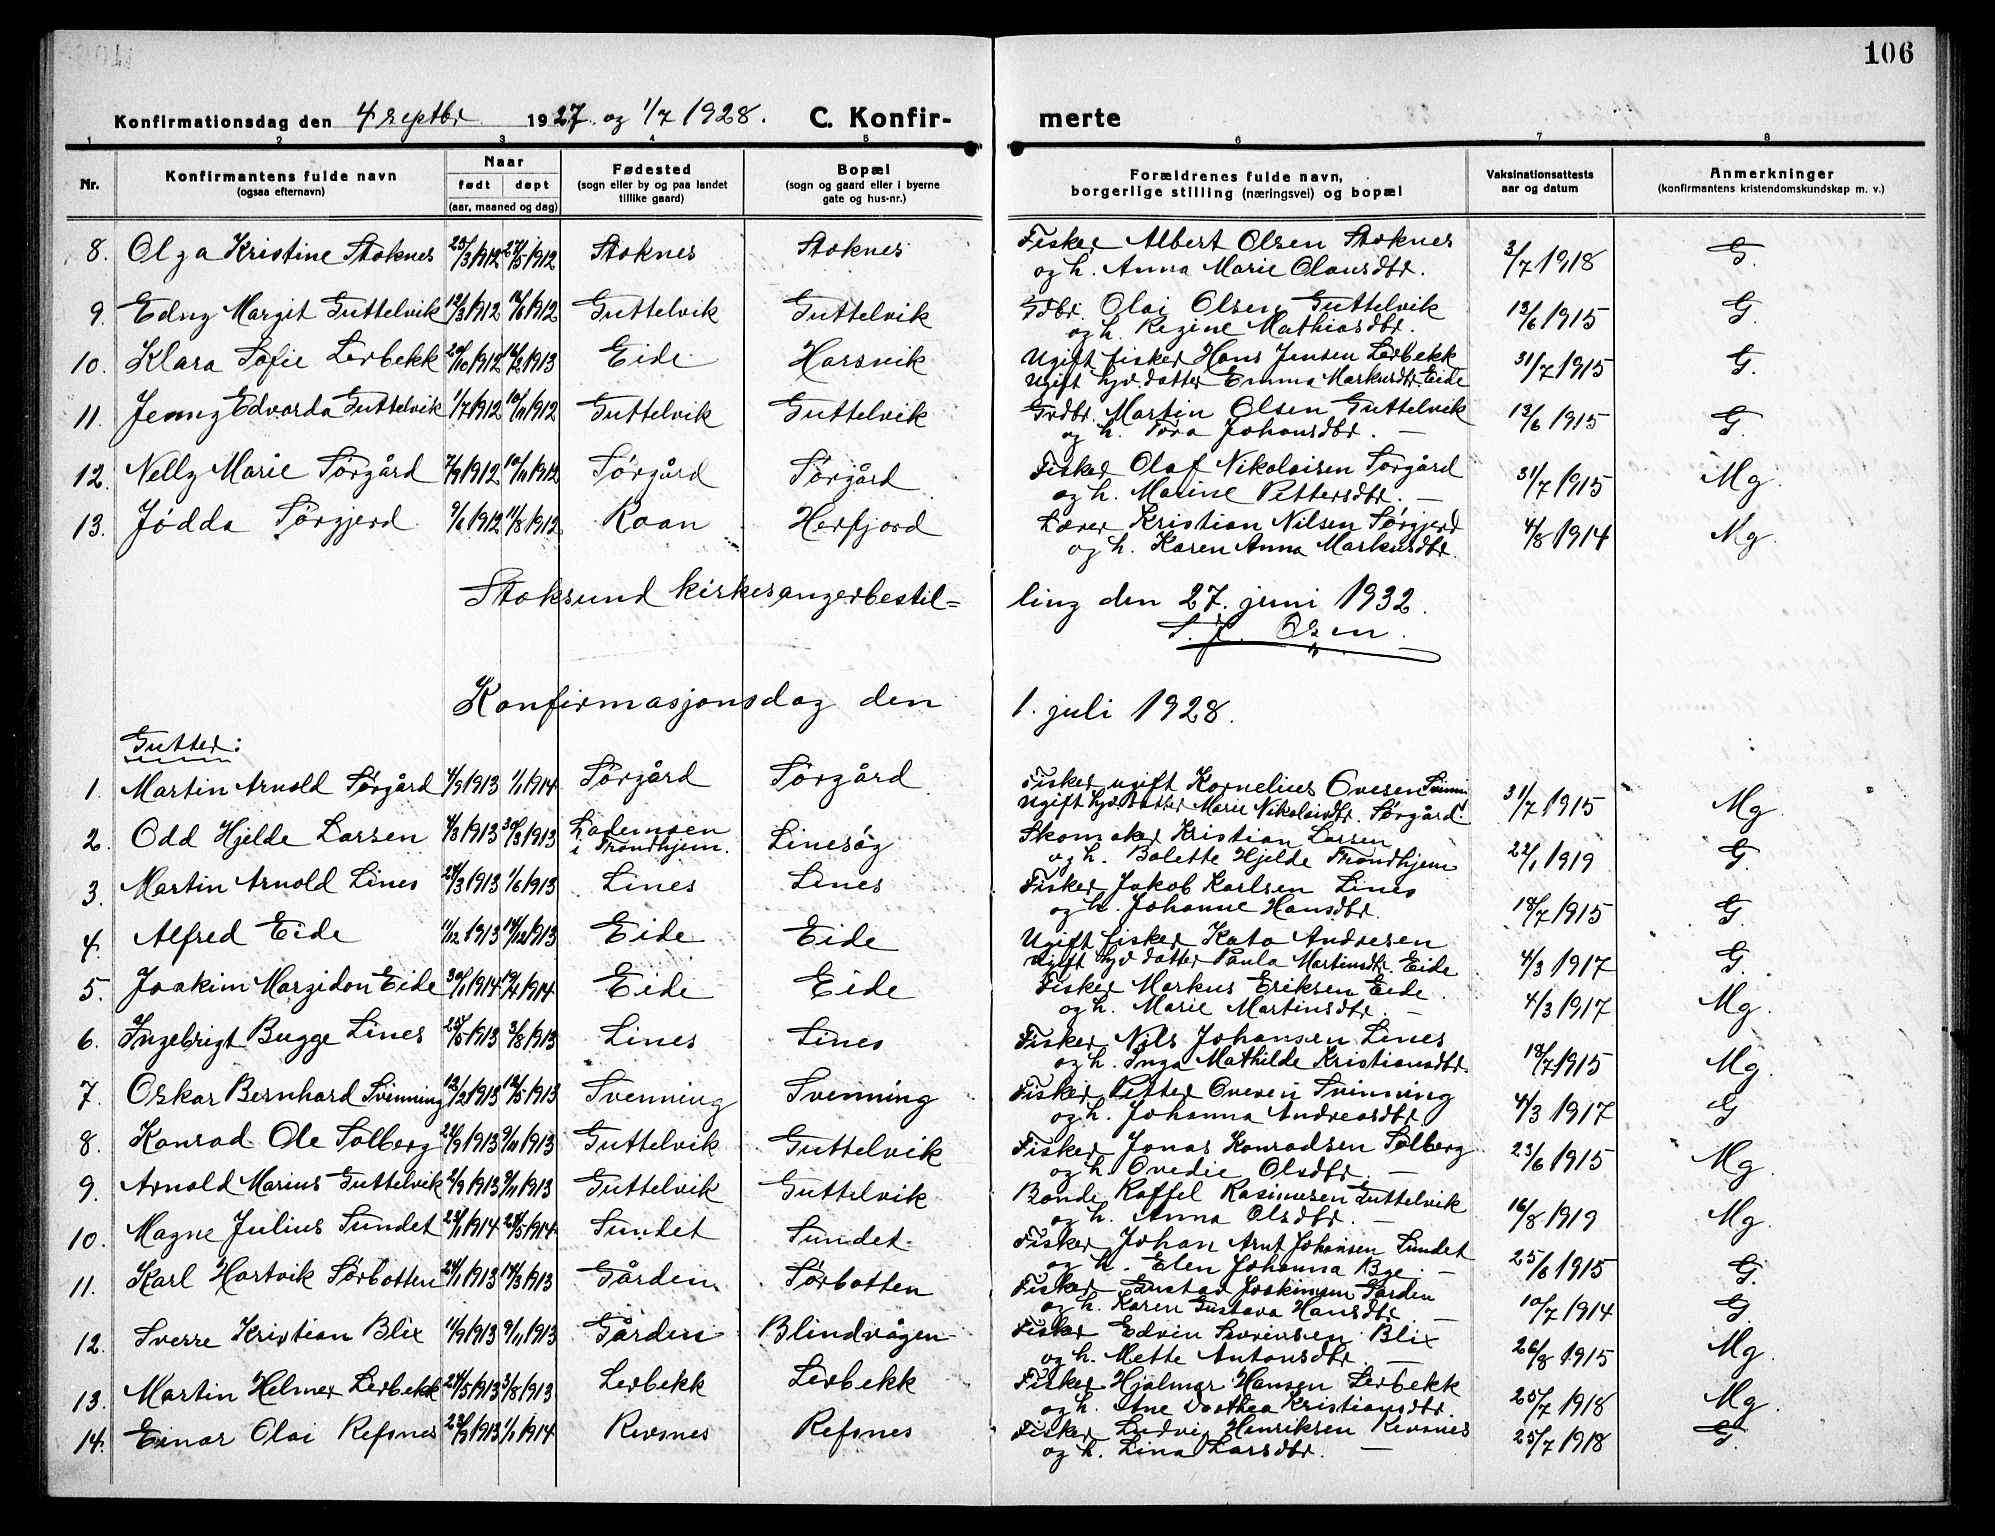 106
Konfirmationsdag den 4 septbr 1927 og 1/7 1928. C. Konfir- merte
1 2 3 4 5 6 7 8
Nr. Konfirmantens fulde navn (ogsaa efternavn) Naar født døpt (aar, maaned og dag) Fødested (sogn eller by og paa landet tillike gaard) Bopæl (sogn og gaard eller i byerne gate og hus-nr.) Forældrenes fulde navn, borgerlige stilling (næringsvei) og bopæl Vaksinationsattests aar og datum Anmerkninger (konfirmantens kristendomskundskap m. v.)
8. Olga Kristine Stoknes 25/3 1912 /5 1912 Stoknes Stoknes Fisker Albert Olsen Stoknes 3/7 1918 G.
og h. Anna Marie Olausdtr.
9. Edny Margit Guttelvik 12/3 1912 /6 1912 Guttelvik Guttelvik Gdbr. Olai Olsen Guttelvik 13/6 1915 G.
og h. Regine Mathiasdtr.
10. Klara Sofie Lerbekk /10 1912 /2 1913 Eide Harsvik Ugift fisker Hans Jensen Lerbekk 31/7 1915 G.
Ugift hjv. datter Emma Markusdtr. Eide
11. Jenny Edvarda Guttelvik 1/7 1912 10/11 1912 Guttelvik Guttelvik Grdbr. Martin Olsen Guttelvik 13/6 1915 G.
og h. Tora Johansdtr. —
12. Nelly Marie Sørgård 7/9 1912 10/11 1912 Sørgård Sørgård Fisker Olaf Nikolaisen Sørgård 31/7 1915 Mg.
og h. Marine Pettersdtr. —
13. Jødda Sørgjerd 9/6 1912 11/8 1912 Roan Herfjord Lærer Kristian Nilsen Sørgjerd 4/8 1914 Mg.
og h. Karen Anna Markusdtr.
Stoksund kirkesangerbestil= ling den 27. juni 1932.
Olsen.
Konfirmasjonsdag den 1. juli 1928.
Gutter:
1. Martin Arnold Sørgård 4/9 1913 1/1 1914 Sørgård Sørgård Fisker ugift Kornelius Ovesen 31/7 1915 Mg
Ugift hjv. datter Marie Nikolaidtr. Sørgård.
2. Odd Hjelde Larsen 4/3 1913 30/3 1913 Lademoen i Trondhjem. Linesøy Skomaker Kristian Larsen 22/1 1919 G.
og h. Bolette Hjelde Trondhjem
3. Martin Arnold Lines /3 1913 1/6 1913 Lines Lines Fisker Jakob Karlsen Lines 18/7 1915 G.
og h. Johanne Hansdtr.
4. Alfred Eide 11/12 1913 /12 1913 Eide Eide Ugift fisker Kato Andresen 4/3 1917 G.
Ugift hjv datter Paula Martinsdtr. Eide
5. Joakim Margidon Eide 30/1 1914 /4 1914 Eide Eide Fisker Markus Eriksen Eide 4/3 1917 Mg.
og h. Marie Martinsdtr. —
6. Ingebrigt Bugge Lines 25/5 1913 3/8 1913 Lines Lines Fisker Nils Johansen Lines 18/7 1915 Mg.
og h. Inga Mathilde Kristiansdtr.
7. Oskar Bernhard Svenning 13/2 1913 /5 1913 Svenning Svenning Fisker Petter Ovesen Svinning 4/3 1917 G
og h. Johanna Andreasdtr.
8. Konrad Ole Solberg /9 1913 9/11 1913 Guttelvik Guttelvik Fisker Jonas Konradsen Solberg 23/6 1915 Mg.
og h. Ovedie Olsdtr. —
9. Arnold Marius Guttelvik /9 1913 9/11 1913 Guttelvik Guttelvik Bonde Raffel Rasmusen Guttelvik 16/8 1919 Mg.
og h. Anna Olsdtr. —
10. Magne Julius Sundet /1 1914 /5 1914 Sundet Sundet. Fisker Johan Arnt Johansen Sundet 25/6 1915 G.
og h. Elen Johanna Bye. —
11. Karl Hartvik Sørbotten /1 1913 /3 1913 Gården Sørbotten Fisker Gustav Joakimsen Garden 10/7 1914 G.
og h. Karen Gustava Hansdtr. —
12. Sverre Kristian Blix 11/9 1913 9/11 1913 Gården Blindvågen Fisker Edvin Severinsen Blix 26/8 1915 Mg.
og h. Mette Antonsdtr. —
13. Martin Helmer Lerbekk /5 1913 3/8 1913 Lerbekk Lerbekk Fisker Hjalmar Hansen Lerbekk 25/7 1918 Mg.
og h. Ane Dorthea Kristiansdtr.
14. Einar Olai Refsnes /9 1913 1/1 1914 Revsnes Refsnes Fisker Ludvig Henriksen Revsnes 25/7 1918 G.
og h. Lina Larsdtr. —